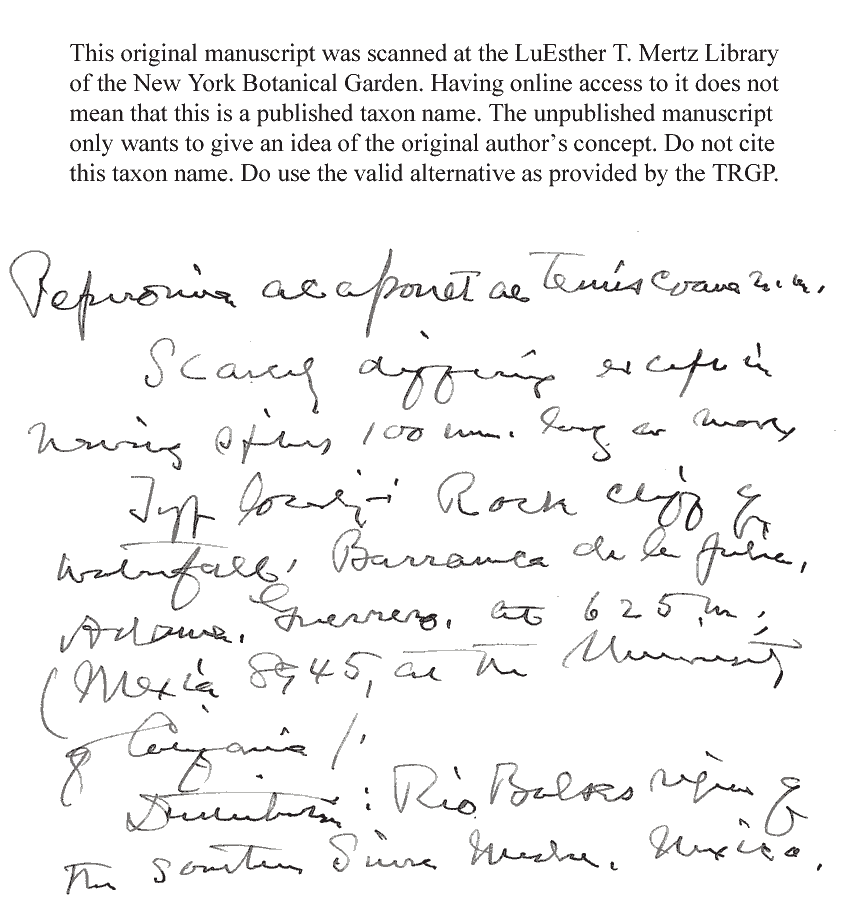 This original manuscript was scanned at the LuEsther T. Mertz Library
of the New York Botanical Garden. Having online access to it does not
mean that this is a published taxon name. The unpublished manuscript
only wants to give an idea of the original author’s concept. Do not cite
this taxon name. Do use the valid alternative as provided by the TRGP.
Peperomia
Scarcely differing except in
having spikes 100 mm. long or more
Type locality: Rock cliff of
waterfall, Barranca de la Julia,
Guerrero, at 625 m;
(Mexia 8945, at the University
of California).
Distribution: Rio Balsas region of
the southern Sierra Madre, Mexico.